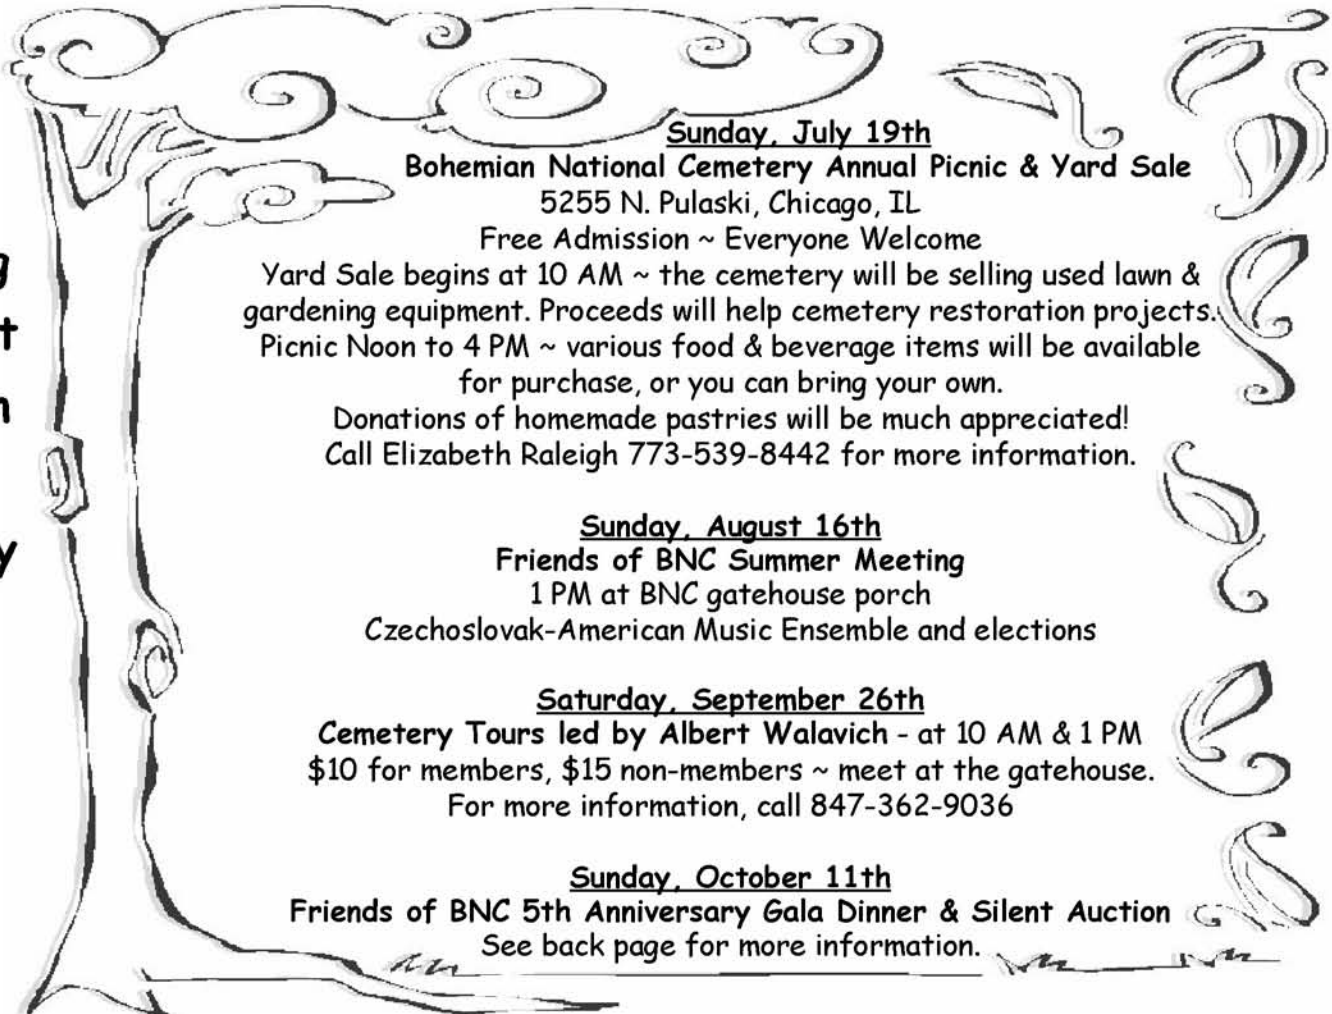 Sunday, July 19th
Bohemian National Cemetery Annual Picnic & Yard Sale
5255 N. Pulaski, Chicago, IL
Free Admission ~ Everyone Welcome
Yard Sale begins at 10 AM ~ the cemetery will be selling used lawn &
gardening equipment. Proceeds will help cemetery restoration projects.
Picnic Noon to 4 PM ~ various food & beverage items will be available
for purchase, or you can bring your own.
Donations of homemade pastries will be much appreciated!
Call Elizabeth Raleigh 773-539-8442 for more information.
Sunday, August 16th
Friends of BNC Summer Meeting
1 PM at BNC gatehouse porch
Czechoslovak-American Music Ensemble and elections
Saturday, September 26th
Cemetery Tours led by Albert Walavich - at 10 AM & 1 PM
$10 for members, $15 non-members ~ meet at the gatehouse.
For more information, call 847-362-9036
Sunday, October 11th
Friends of BNC 5th Anniversary Gala Dinner & Silent Auction
See back page for more information.